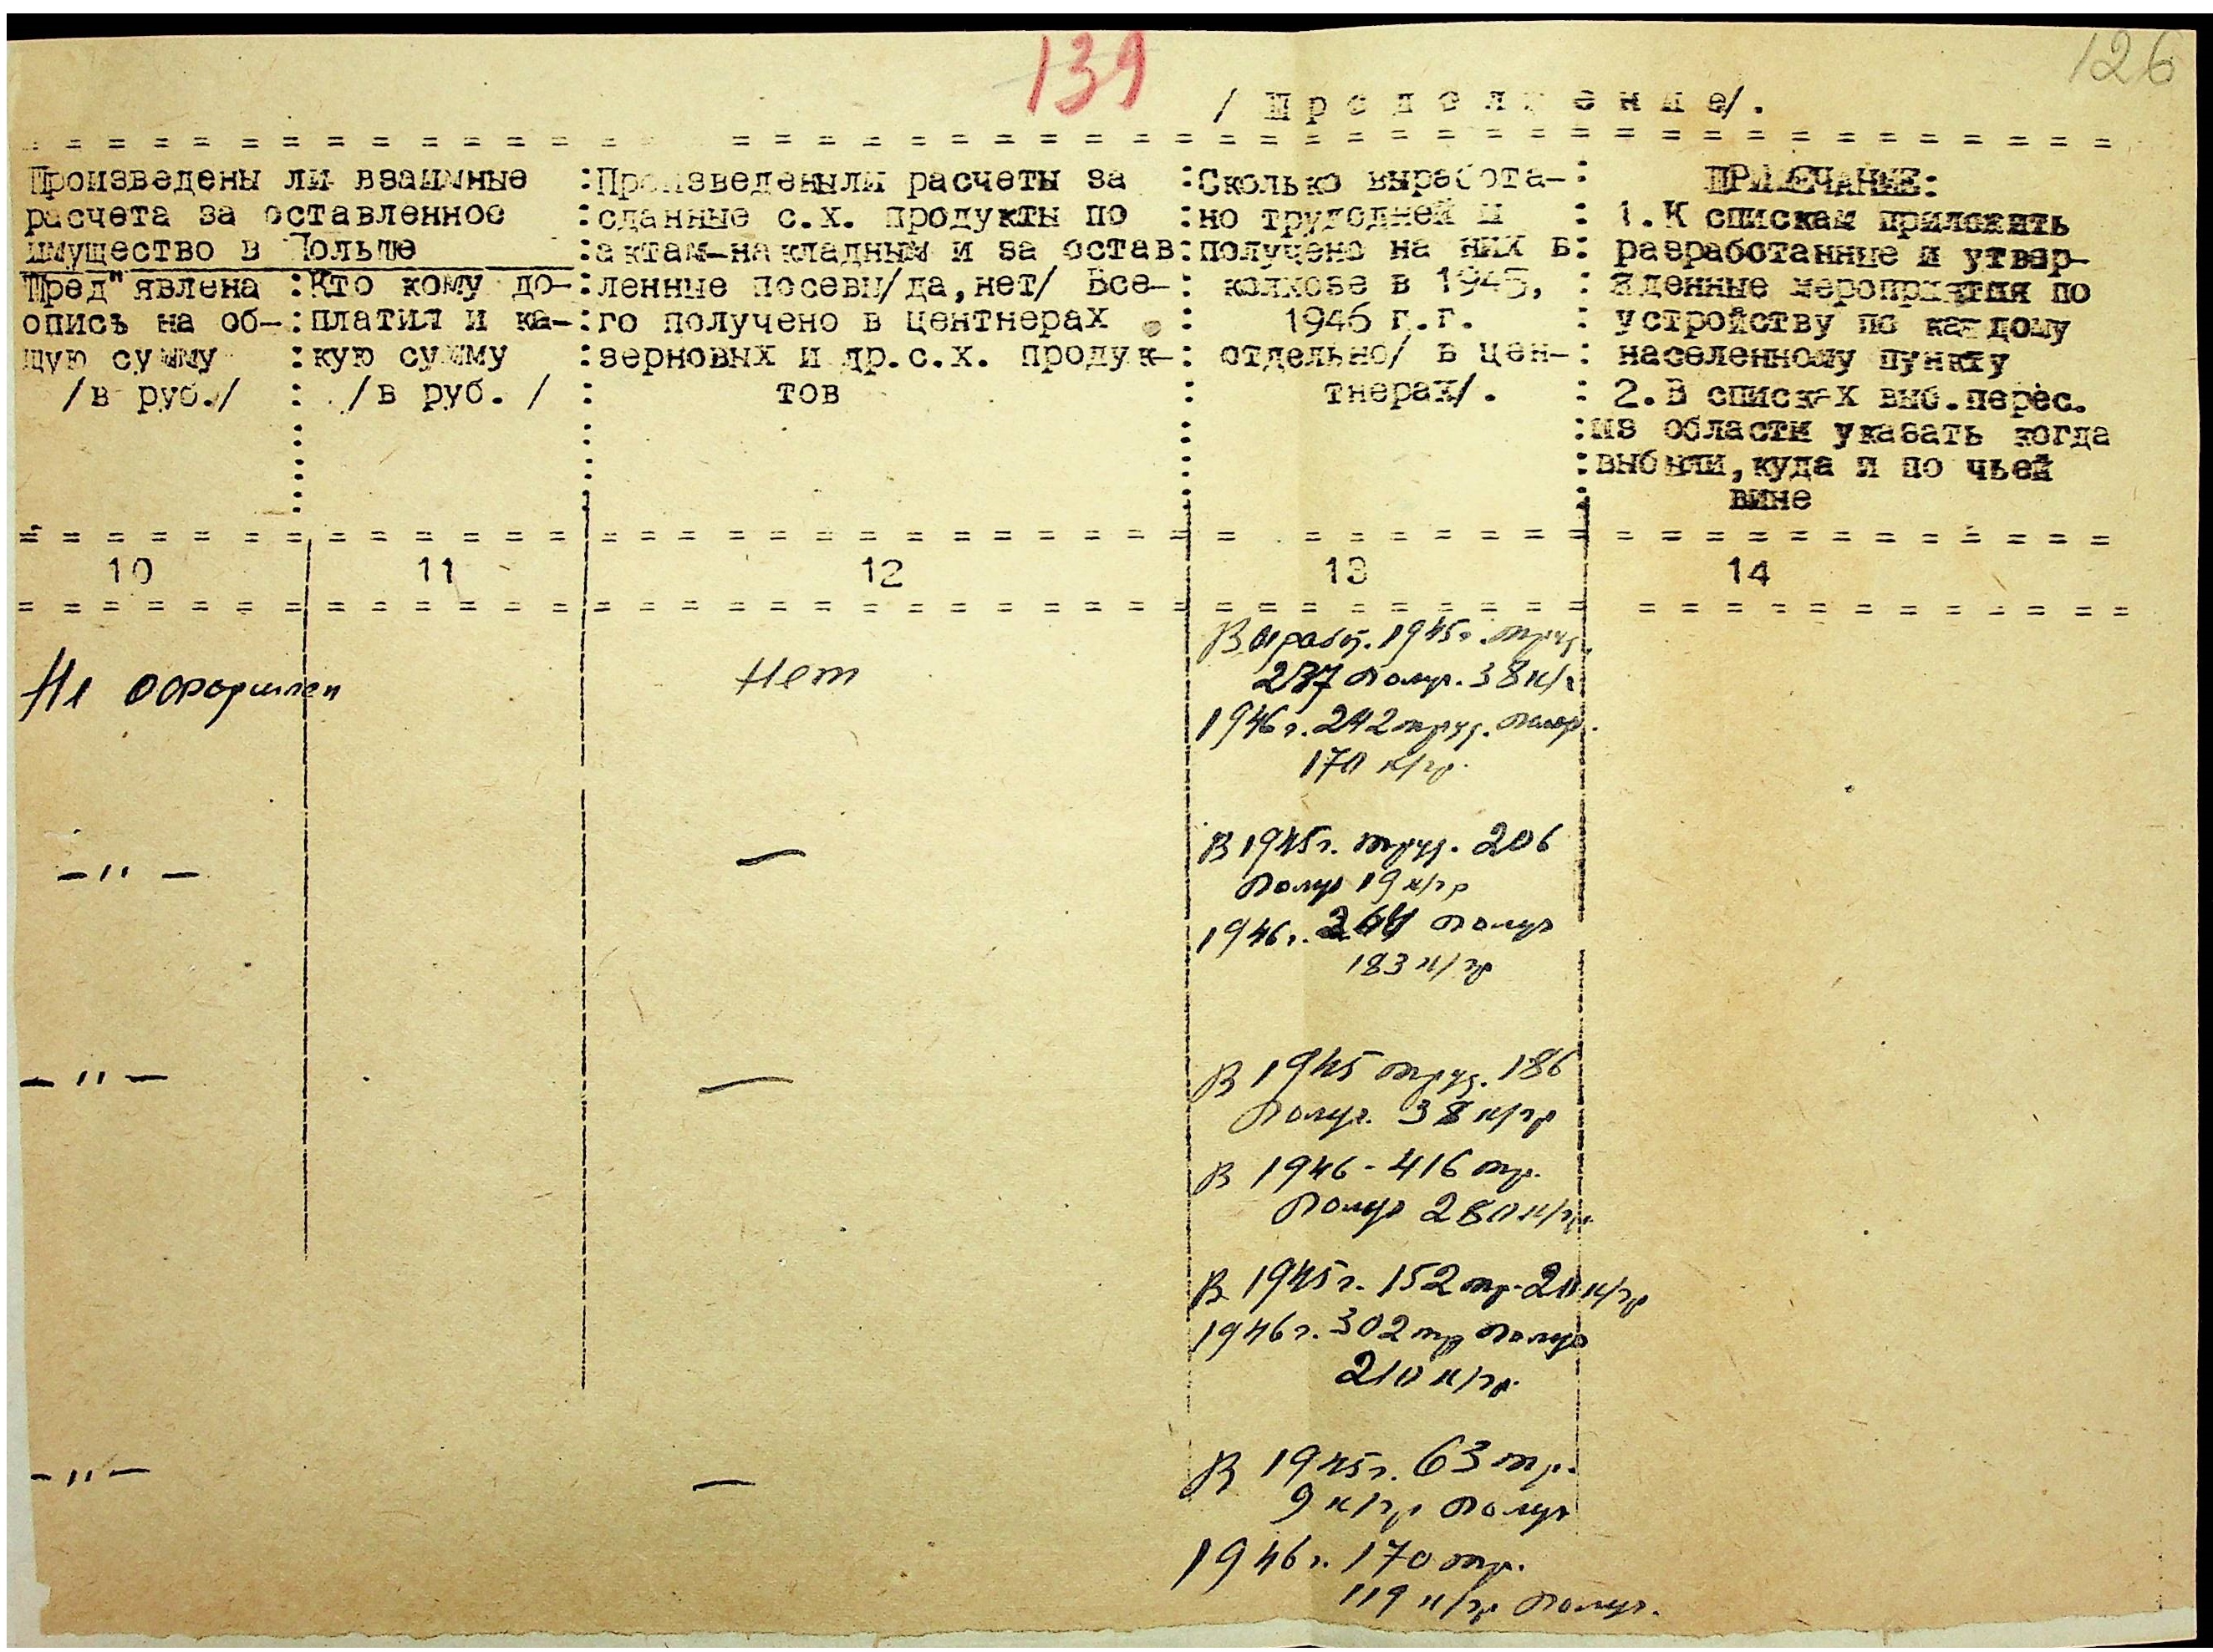 139
126
/ П р о д о л ж е н и е/.
Произведены ли взаимные
расчета за оставленное
имущество в Польше
Пред"явлена
опись на об-
щую сумму
/в руб./
Кто кому до-
платил и ка-
кую сумму
/в руб. /
Произведеныли расчеты за
сданные с.х. продукты по
актам-накладным и за остав
ленные посевы/да,нет/ Все-
го получено в центнерах
зерновых и др.с.х. продук-
тов
Сколько выработа-
но трудодней и
получено на них в
колхозе в 1945,
1946 г.г.
отдельно/ в цен-
тнерах/.
ПРИМЕЧАНИЕ:
1.К спискам приложить
разработанные и утвер-
жденные мероприятия по
устройству по каждому
населенному пункту
2.В списках выб.перес.
из области указать когда
выбыли,куда и по чьей
вине
10 11 12 13 14
Не оформлен
Нет
1945г. труд.
237 получ. 38 к/г
1946 г. 242 труд. получ.
170 к/гр.
-"- —
В 1945г. труд. 206
получ 19 к/гр
1946г. 264 получ
183 к/гр
-"- —
В 1945 труд. 186
получ. 38 к/гр
В 1946 - 416 тр.
получ 280 к/гр.
В 1945г. 152 тр. 20 к/гр
1946 г. 302 тр получ
210 к/гр.
-"- —
В 1945г. 63 тр.
9 к/гр получ
1946г. 170 тр.
119 к/гр получ.